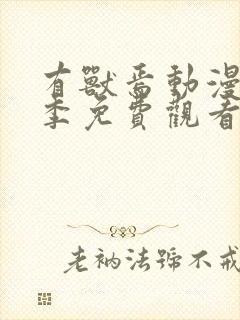 有獸焉動漫
季免費觀看
老衲法號不戒